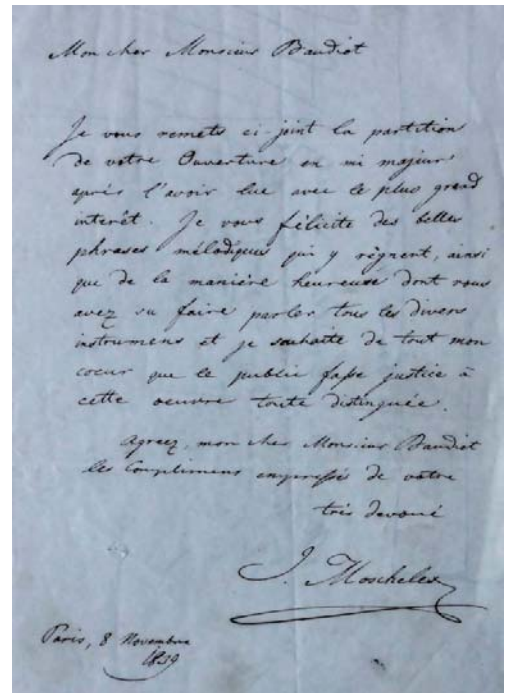 Mon cher Monsieur Baudiot
Je vous remets ci-joint la partition
de votre Ouverture en mi majeur
après l'avoir lue avec le plus grand
interêt. Je vous félicite des belles
phrases mélodiques qui y règnent, ainsi
que de la manière heureuse dont vous
avez su faire parler tous les divers
instrumens et je souhaite de tout mon
coeur que le public fasse justice à
cette oeuvre toute distinguée.
Agreez, mon cher Monsieur Baudiot
les Complimens empressés de votre
très devoué
J. Moscheles
Paris, 8 Novembre
1839